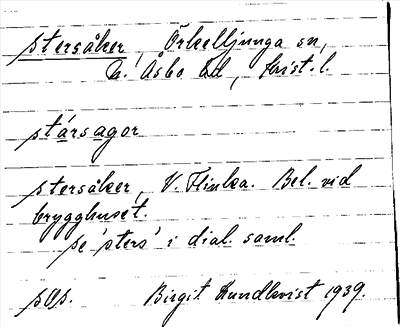 stersåker, Örkelljunga sn,
N. Åsbo hd, Krist. l.
stársagor
stersåker, V. Flinka. Bel. vid
brygghuset.
se 'sters' i dial. saml.
Birgit Lundkvist 1939.